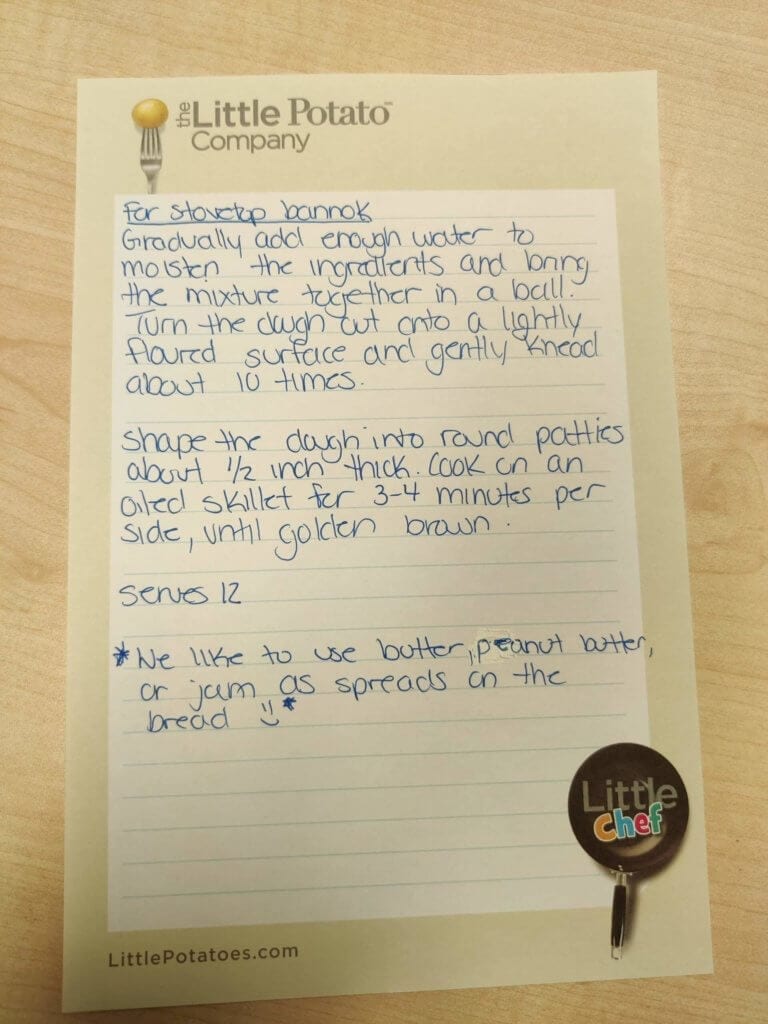 the Little Potato™
Company
For stovetop bannok
Gradually add enough water to
moisten the ingredients and bring
the mixture together in a ball.
Turn the dough out onto a lightly
floured surface and gently knead
about 10 times.
Shape the dough into round patties
about 1/2 inch thick. Cook on an
oiled skillet for 3-4 minutes per
side, until golden brown.
Serves 12
*We like to use butter, peanut butter,
or jam as spreads on the
bread :) *
Little
Chef
LittlePotatoes.com